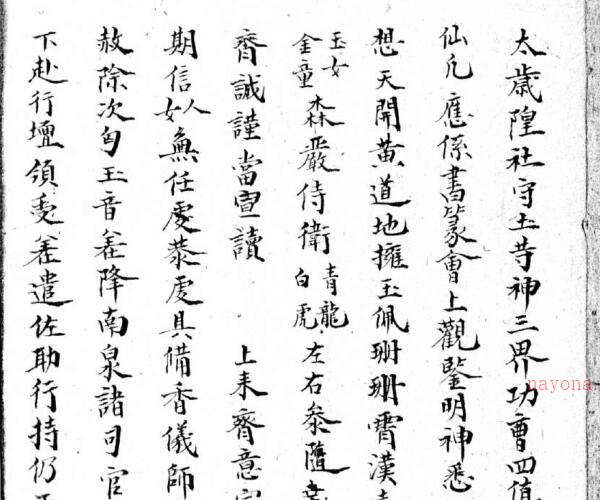 太歲隍社守土等神三界功曹四值
仙凡應係書篆會上觀鑒明神悉
想天開黃道地擁玉佩珊珊霄漢
玉女金童森嚴侍衛青龍白虎左右參隨
齊誠謹當宣讀 上來齊意
期信人女無任虔恭虔具備香儀師
赦除次自玉音差降南泉諸司官
下赴行壇領受差遣佐助行持仍
nayona